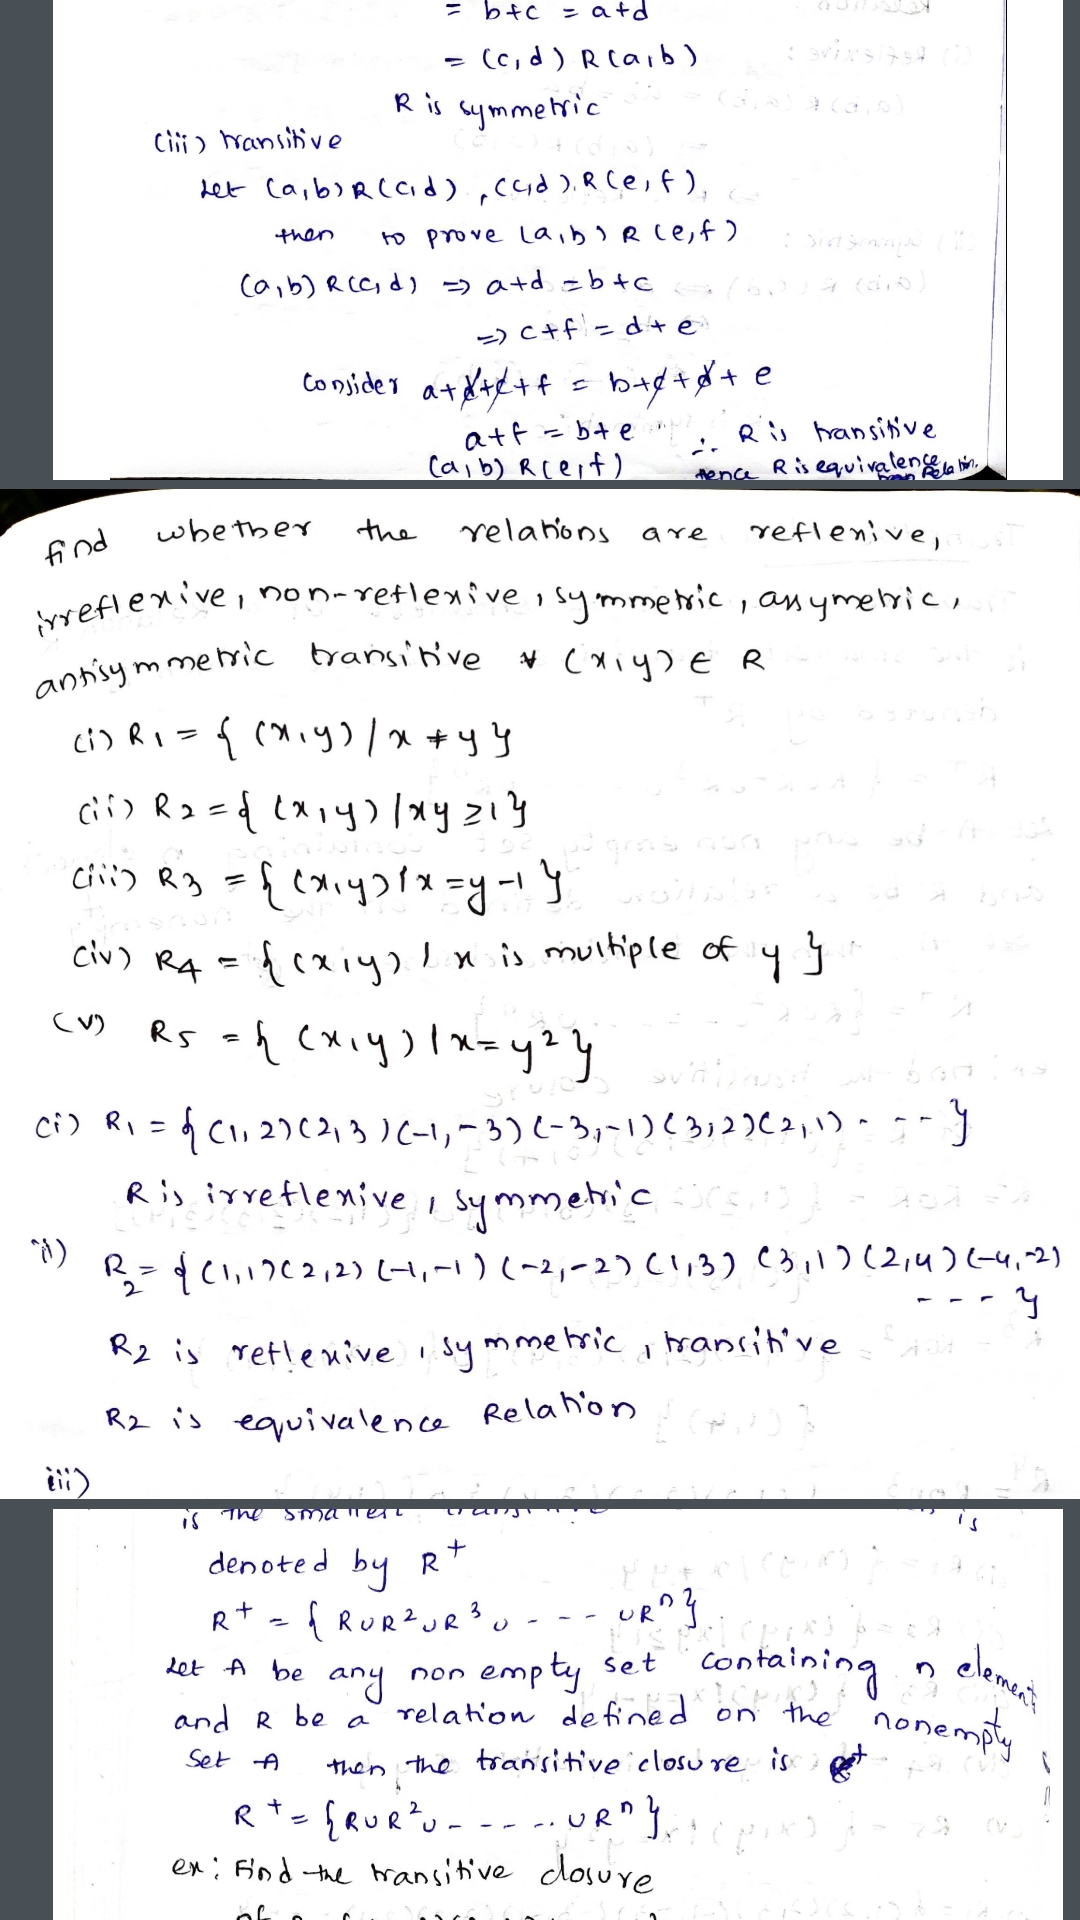 = b+c = a+d
= (c,d) R(a,b)
R is symmetric
(iii) transitive
Let (a,b)R(c,d), (c,d).R(e,f),
then to prove (a,b) R (e,f)
(a,b) R(c,d) ⇒ a+d = b+c
⇒ c+f = d+e
Consider a+d+c+f = b+c+d+e
a+f = b+e ∴ R is transitive
(a,b) R(e,f) Hence R is equivalence Relation.
find whether the relations are reflexive,
irreflexive, non-reflexive, symmetric, assymetric,
antisymmetric transitive ∀ (x,y) ∈ R
(i) R1 = { (x,y) / x ≠ y }
(ii) R2 = { (x,y) / xy ≥ 1 }
(iii) R3 = { (x,y) / x = y-1 }
(iv) R4 = { (x,y) / x is multiple of y }
(v) R5 = { (x,y) / x = y² }
(i) R1 = { (1,2)(2,3)(-1,-3)(-3,-1)(3,2)(2,1) - - - }
R is irreflexive, symmetric
ii) R2 = { (1,1)(2,2)(-1,-1)(-2,-2)(1,3)(3,1)(2,4)(-4,-2)
- - - }
R2 is reflexive, symmetric, transitive
R2 is equivalence Relation
iii)
is the smallest is
denoted by R+
R+ = { R∪R²∪R³∪ - - - ∪Rⁿ }
Let A be any non empty set containing n element
and R be a relation defined on the nonempty
Set A then the transitive closure is
R+ = { R∪R²∪ - - - - .. ∪Rⁿ }
ex: Find the transitive closure
of